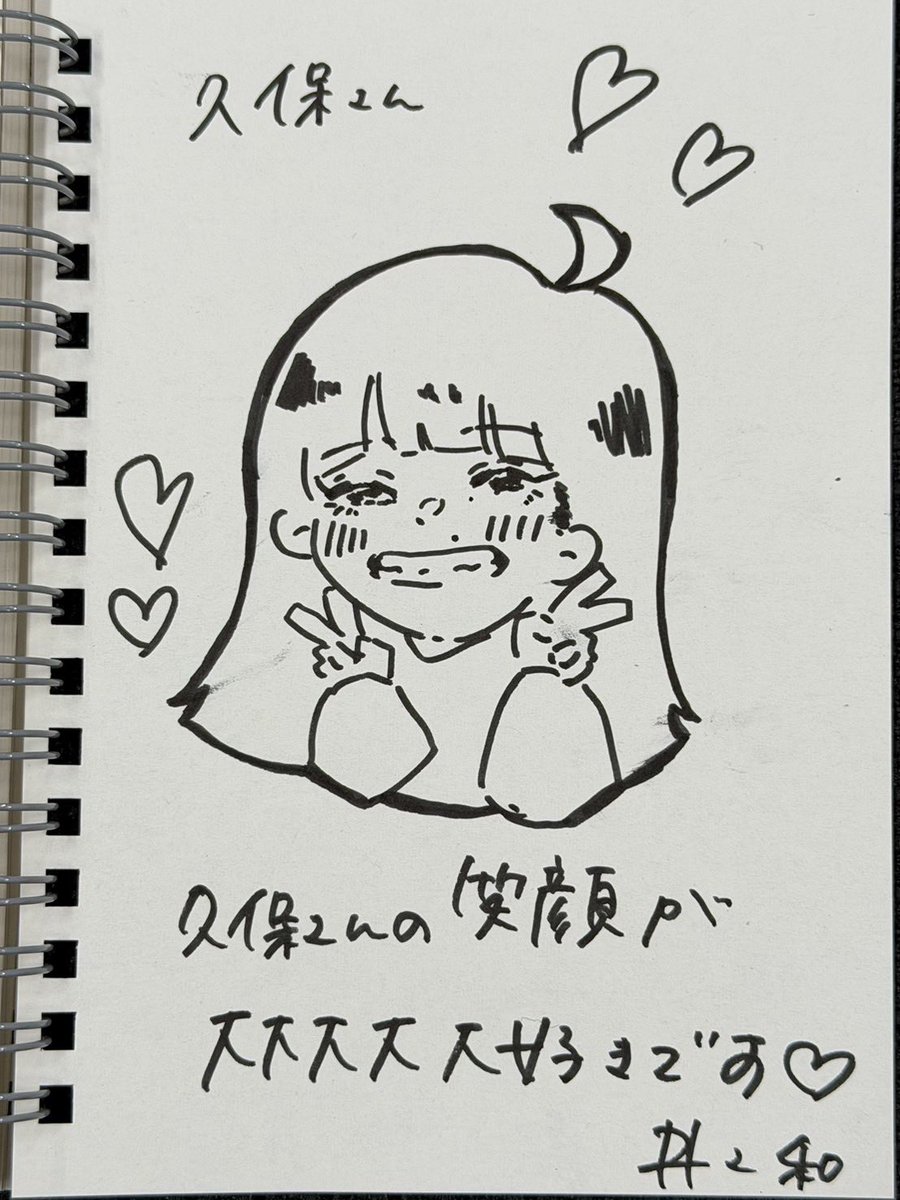 久保さん
久保さんの笑顔が
大大大大大好きです♡
井上和